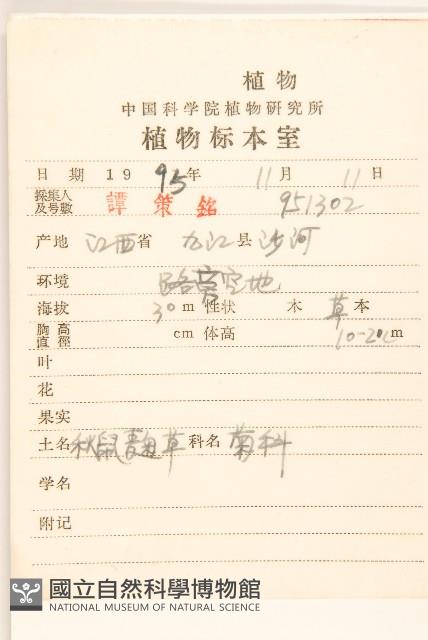 植物
中国科学院植物研究所
植物标本室
日期 1995年 11月 11日
採集人及号數 譚策銘 951302
产地 江西省 九江县 沙河
环境 路旁空地
海拔 30m 性状 木 草本
胸高直徑 cm 体高 10-20cm
叶
花
果实
土名 秋鼠麴草 科名 菊科
学名
附记
國立自然科學博物館
NATIONAL MUSEUM OF NATURAL SCIENCE